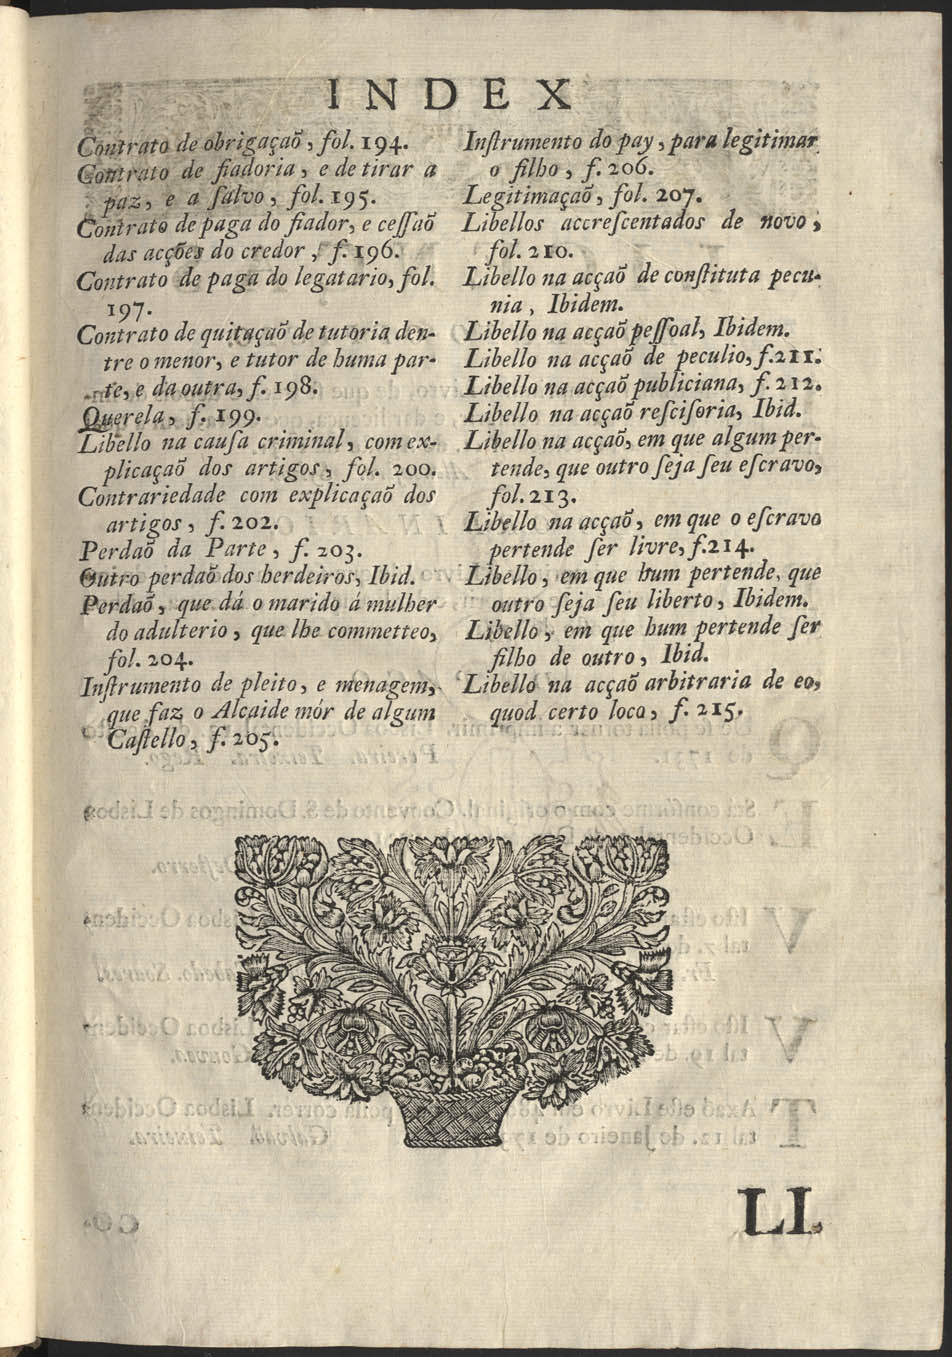 INDEX
Contrato de obrigaçaõ, fol. 194.
Contrato de fiadoria, e de tirar a
paz, e a ſalvo, fol. 195.
Contrato de paga do fiador, e ceſſaõ
das acções do credor, f. 196.
Contrato de paga do legatario, fol.
197.
Contrato de quitaçaõ de tutoria den-
tre o menor, e tutor de huma par-
te, e da outra, f. 198.
Querela, f. 199.
Libello na cauſa criminal, com ex-
plicaçaõ dos artigos, fol. 200.
Contrariedade com explicaçaõ dos
artigos, f. 202.
Perdaõ da Parte, f. 203.
Outro perdaõ dos herdeiros, Ibid.
Perdaõ, que dá o marido á mulher
do adulterio, que lhe commetteo,
fol. 204.
Inſtrumento de pleito, e menagem,
que faz o Alcaide mór de algum
Caſtello, f. 205.
Inſtrumento do pay, para legitimar
o filho, f. 206.
Legitimaçaõ, fol. 207.
Libellos accreſcentados de novo,
fol. 210.
Libello na acçaõ de conſtituta pecu-
nia, Ibidem.
Libello na acçaõ peſſoal, Ibidem.
Libello na acçaõ de peculio, f. 211.
Libello na acçaõ publiciana, f. 212.
Libello na acçaõ reſciſoria, Ibid.
Libello na acçaõ, em que algum per-
tende, que outro ſeja ſeu eſcravo,
fol. 213.
Libello na acçaõ, em que o eſcravo
pertende ſer livre, f. 214.
Libello, em que hum pertende, que
outro ſeja ſeu liberto, Ibidem.
Libello, em que hum pertende ſer
filho de outro, Ibid.
Libello na acçaõ arbitraria de eo,
quod certo loco, f. 215.
LI.